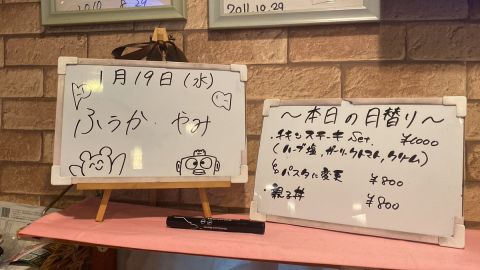 2011.10.29
1月19日(水)
ふうか・やみ
〜本日の日替り〜
・チキンステーキSet. ¥1000
(ハーブ塩、ガーリックトマト、クリーム)
パスタに変更 ¥800
・親子丼 ¥800